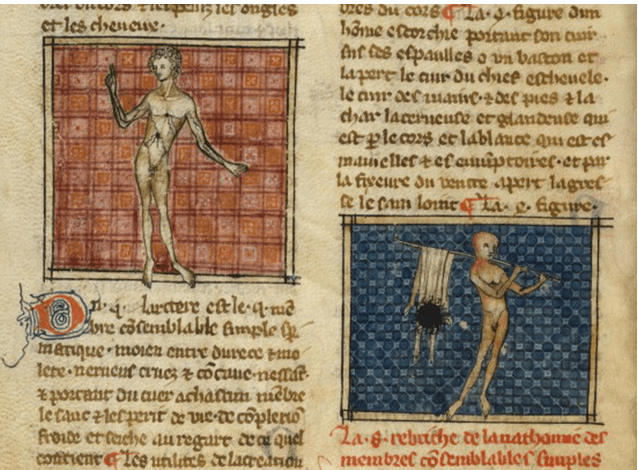 du cors les ongles
et les cheveux.
lartere est le .q. mē
bre cōsemblable simple sp̄
matique · moien entre durece ⁊ mo
lete · nerveus cruez ⁊ cōcave · nessāt
⁊ portant du cuer achascun mēbre
le sanc ⁊ lesperit de vie · de cōplexiō
froide et seche au regart de ce quel
contient ¶ Les utilites de lacreation
bres du cors ¶ La .q. figure dun
home escorchie portant son cuir
sus ses espaulles o un baston et
la pert le cuir du chief eschevele ·
le cuir des mains · ⁊ des pies ⁊ la
char lacerneuse et glandeuse qui
est p le cors et lablance qui est es
mamelles ⁊ es emuptoires · et par
la fixeure du ventre · apert lagres
se le saim loint ¶ La .e. figure ·
La .8. rebriche de lanathomie des
membres cōsemblables simples